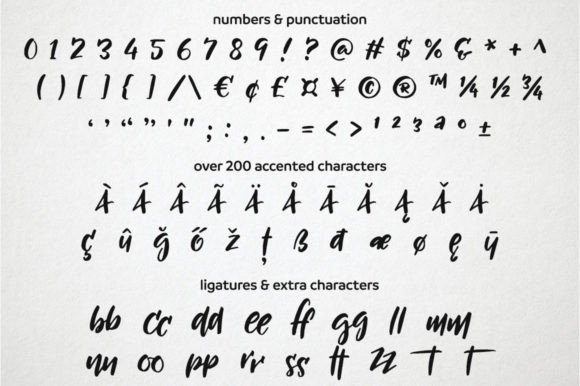 numbers & punctuation
0 1 2 3 4 5 6 7 8 9 ! ? @ # $ % & * + ^
( ) [ ] { } / \ € ¢ £ ¤ ¥ © ® ™ ¼ ½ ¾
‘ ’ “ ” ' " ; : , . - = < > ¹ ² ³ ª º ±
over 200 accented characters
À Á Â Ã Ä Å Ā Ă Ą Ǎ Ȧ
ç û ğ ő ž ț ß đ æ ø ę ȳ
ligatures & extra characters
bb cc dd ee ff gg ll mm
nn oo pp rr ss tt zz T T